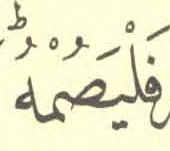 فَلْيَصُمْهُ ۖ